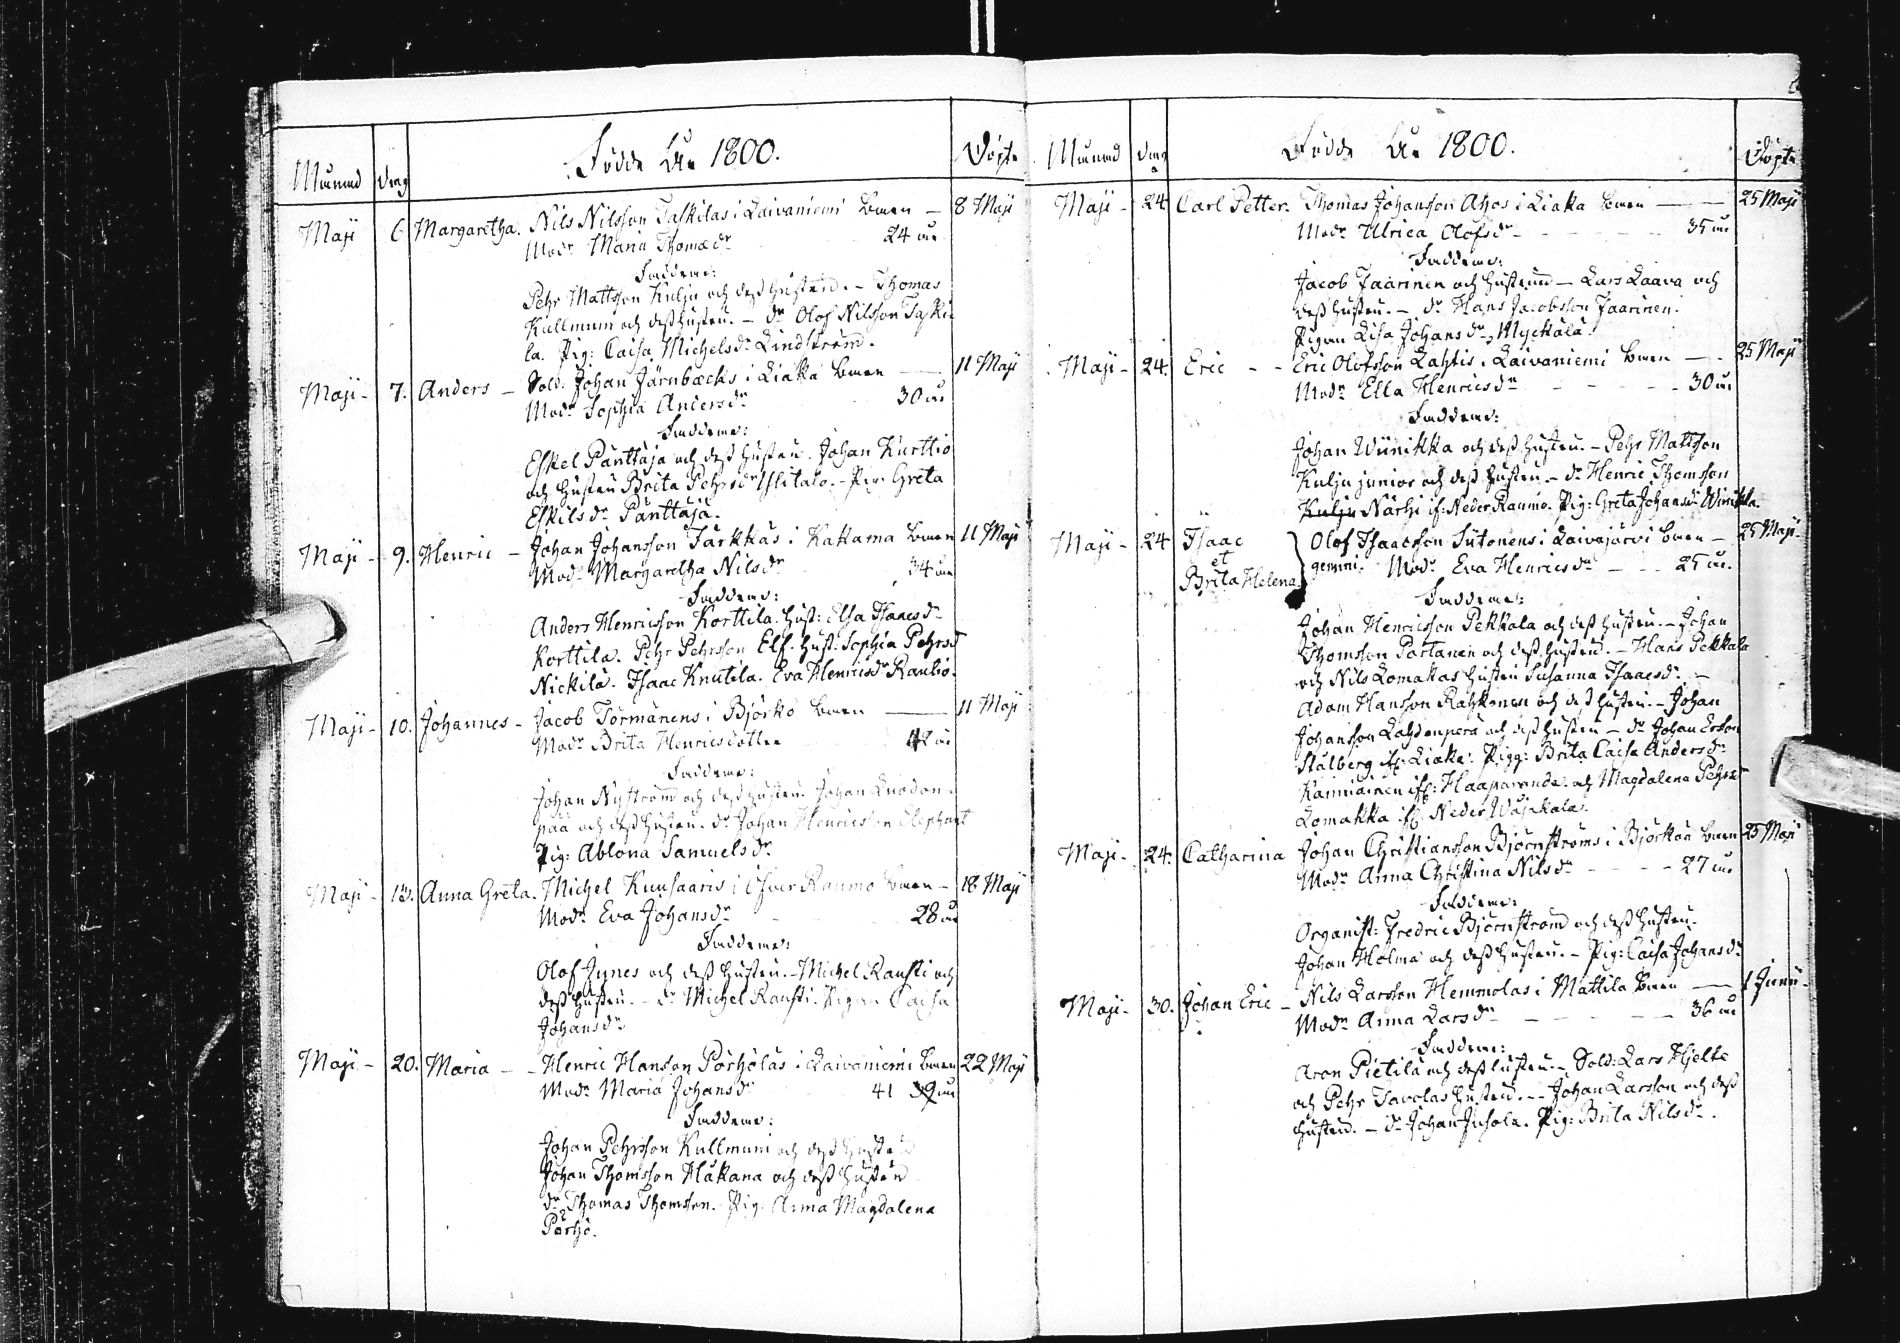 Födde År 1800.
Månad Dag Döpte
Maji 6 Margaretha. Nils Nilsson Taskilas i Laivaniemi barn — 8 Maji
Modr Maria Thomædr 24 år
Faddrar:
Pehr Mattsson Kulju och dess hustru. — Thomas
Kullmum och dess hustru. — dr Olof Nilsson Taski-
la. Pig: Caisa Michelsdr Lindström.
Maji - 7. Anders - Sold: Johan Järnbäcks i Liaka barn — 11 Maji
Modr Sophia Andersdr 30 år
Faddrar:
Eskel Panttaja och dess hustru. Johan Kurttio
och hustru Brita Pehrsdr Ylitalo. - Pig: Greta
Eskilsdr Panttaja.
Maji - 9. Henric - Johan Johansson Tarkkas i Kakama barn 11 Maji
Modr Margaretha Nilsdr 34 år
Faddrar:
Anders Henricsson Korttila. hust: Elsa Isaacsdr
Korttila. Pehr Pehrsson Elf. hust: Sophia Pehrsd
Nickilä. Isaac Knutila. Eva Henricsdr Rautio.
Maji - 10. Johannes - Jacob Törmänens i Björkö barn — 11 Maji
Modr Brita Henricsdotter 42 år
Faddrar:
Johan Nyström och dess hustru. Johan Luodon-
pää och dess hustru. dr Johan Henricsson Elephant
Pig: Ablona Samuelsdr
Maji - 13. Anna Greta. Michel Kuusaaris i Öfver Raumo barn - 18 Maji
Modr Eva Johansdr 28 år
Faddrar:
Olof Jynes och dess hustru. - Michel Rausti och
dess hustru. - dr Michel Rausti. Pigan Caisa
Johansdr
Maji - 20. Maria - - Henric Hansson Pörhölas i Laivaniemi barn 22 Maji
Modr Maria Johansdr 41 39 år
Faddrar:
Johan Pehrsson Kullmuni och dess hustru
Johan Thomsson Hakana och dess hustru
dr Thomas Thomsson. - Pig: Anna Magdalena
Pörhö.
Födde År 1800.
Månad Dag Döpte
Maji - 24 Carl Petter. Thomas Johansson Ahos i Liaka barn — 25 Maji
Modr Ulrica Olofsdr - - - 35 år
Faddrar:
Jacob Jaarinen och hustrun — Lars Laava och
dess hustru. - dr Hans Jacobsson Jaarinen.
Pigan Lisa Johansdr Myckälä.
Maji - 24. Eric - - Eric Olofsson Lahtis i Laivaniemi barn — 25 Maji
Modr Ella Henricsdr - - - 30 år
Faddrar:
Johan Wiinikka och dess hustru. - Pehr Mattsson
Kulju junior och dess hustru - dr Henric Thomsson
Kulju Närhi if: Neder Raumo. Pig: Greta Johansdr Winikka.
Maji - 24 Isaac Olof Isaacsson Sutonens i Laivajärvi barn - 25 Maji
et gemini. Modr Eva Henricsdr - - 25 år.
Brita Helena
Faddrar:
Johan Henricsson Pekkala och dess hustru. - Johan
Thomsson Partanen och dess hustru. - Hans Pekkala
och Nils Lomakas hustru Susanna Isaacsdr -
Adam Hansson Rahkonen och dess hustru. - Johan
Johansson Lahdenperä och dess hustru - dr Johan Ersson
Stålberg if: Liaka. Pigg: Brita Caisa Andersdr
Kainiainen if: Haaparanda. och Magdalena Pehrsdr
Lomakka if: Neder Wojakala.
Maji - 24. Catharina Johan Christiansson Björnströms i Björkön barn 25 Maji
Modr Anna Christina Nilsdr - - - 27 år
Faddrar:
Organist: Fredric Björnström och dess hustru.
Johan Holma och dess hustru. - Pig: Caisa Johansdr
Maji - 30. Johan Eric - Nils Larsson Hemmolas i Mattila barn — 1 Junii
Modr Anna Larsdr - - - 36 år
Faddrar:
Aron Pietilä och dess hustru. - Sold: Lars Hjelte
och Pehr Tavolas hustru. - - Johan Larsson och dess
hustru. - dr Johan Juhola. Pig: Brita Nilsdr.